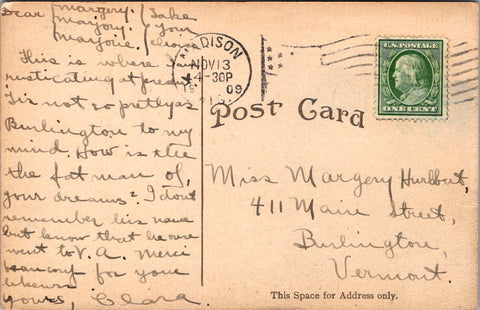 Dear { Margery. } Take
Marjory. your
Marjorie. choice
This is where I'm
rusticating at present
'Tis not so pretty as
Burlington to my
mind. How is the
the fat man of
your dreams? I don't
remember his name
but know that he once
went to V. A. Merci
beaucoup for your
Yours, Clara.
MADISON
NOV 13
4-30P
1909
U.S. POSTAGE
ONE CENT
Post Card
Miss Margery Hurlburt,
411 Main Street,
Burlington,
Vermont.
This Space for Address only.